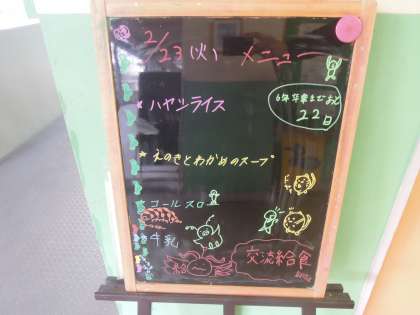 2/23(火) メニュー
* ハヤシライス
6年卒業まであと
22日
* えのきとわかめのスープ
コールスロー
牛乳
交流給食